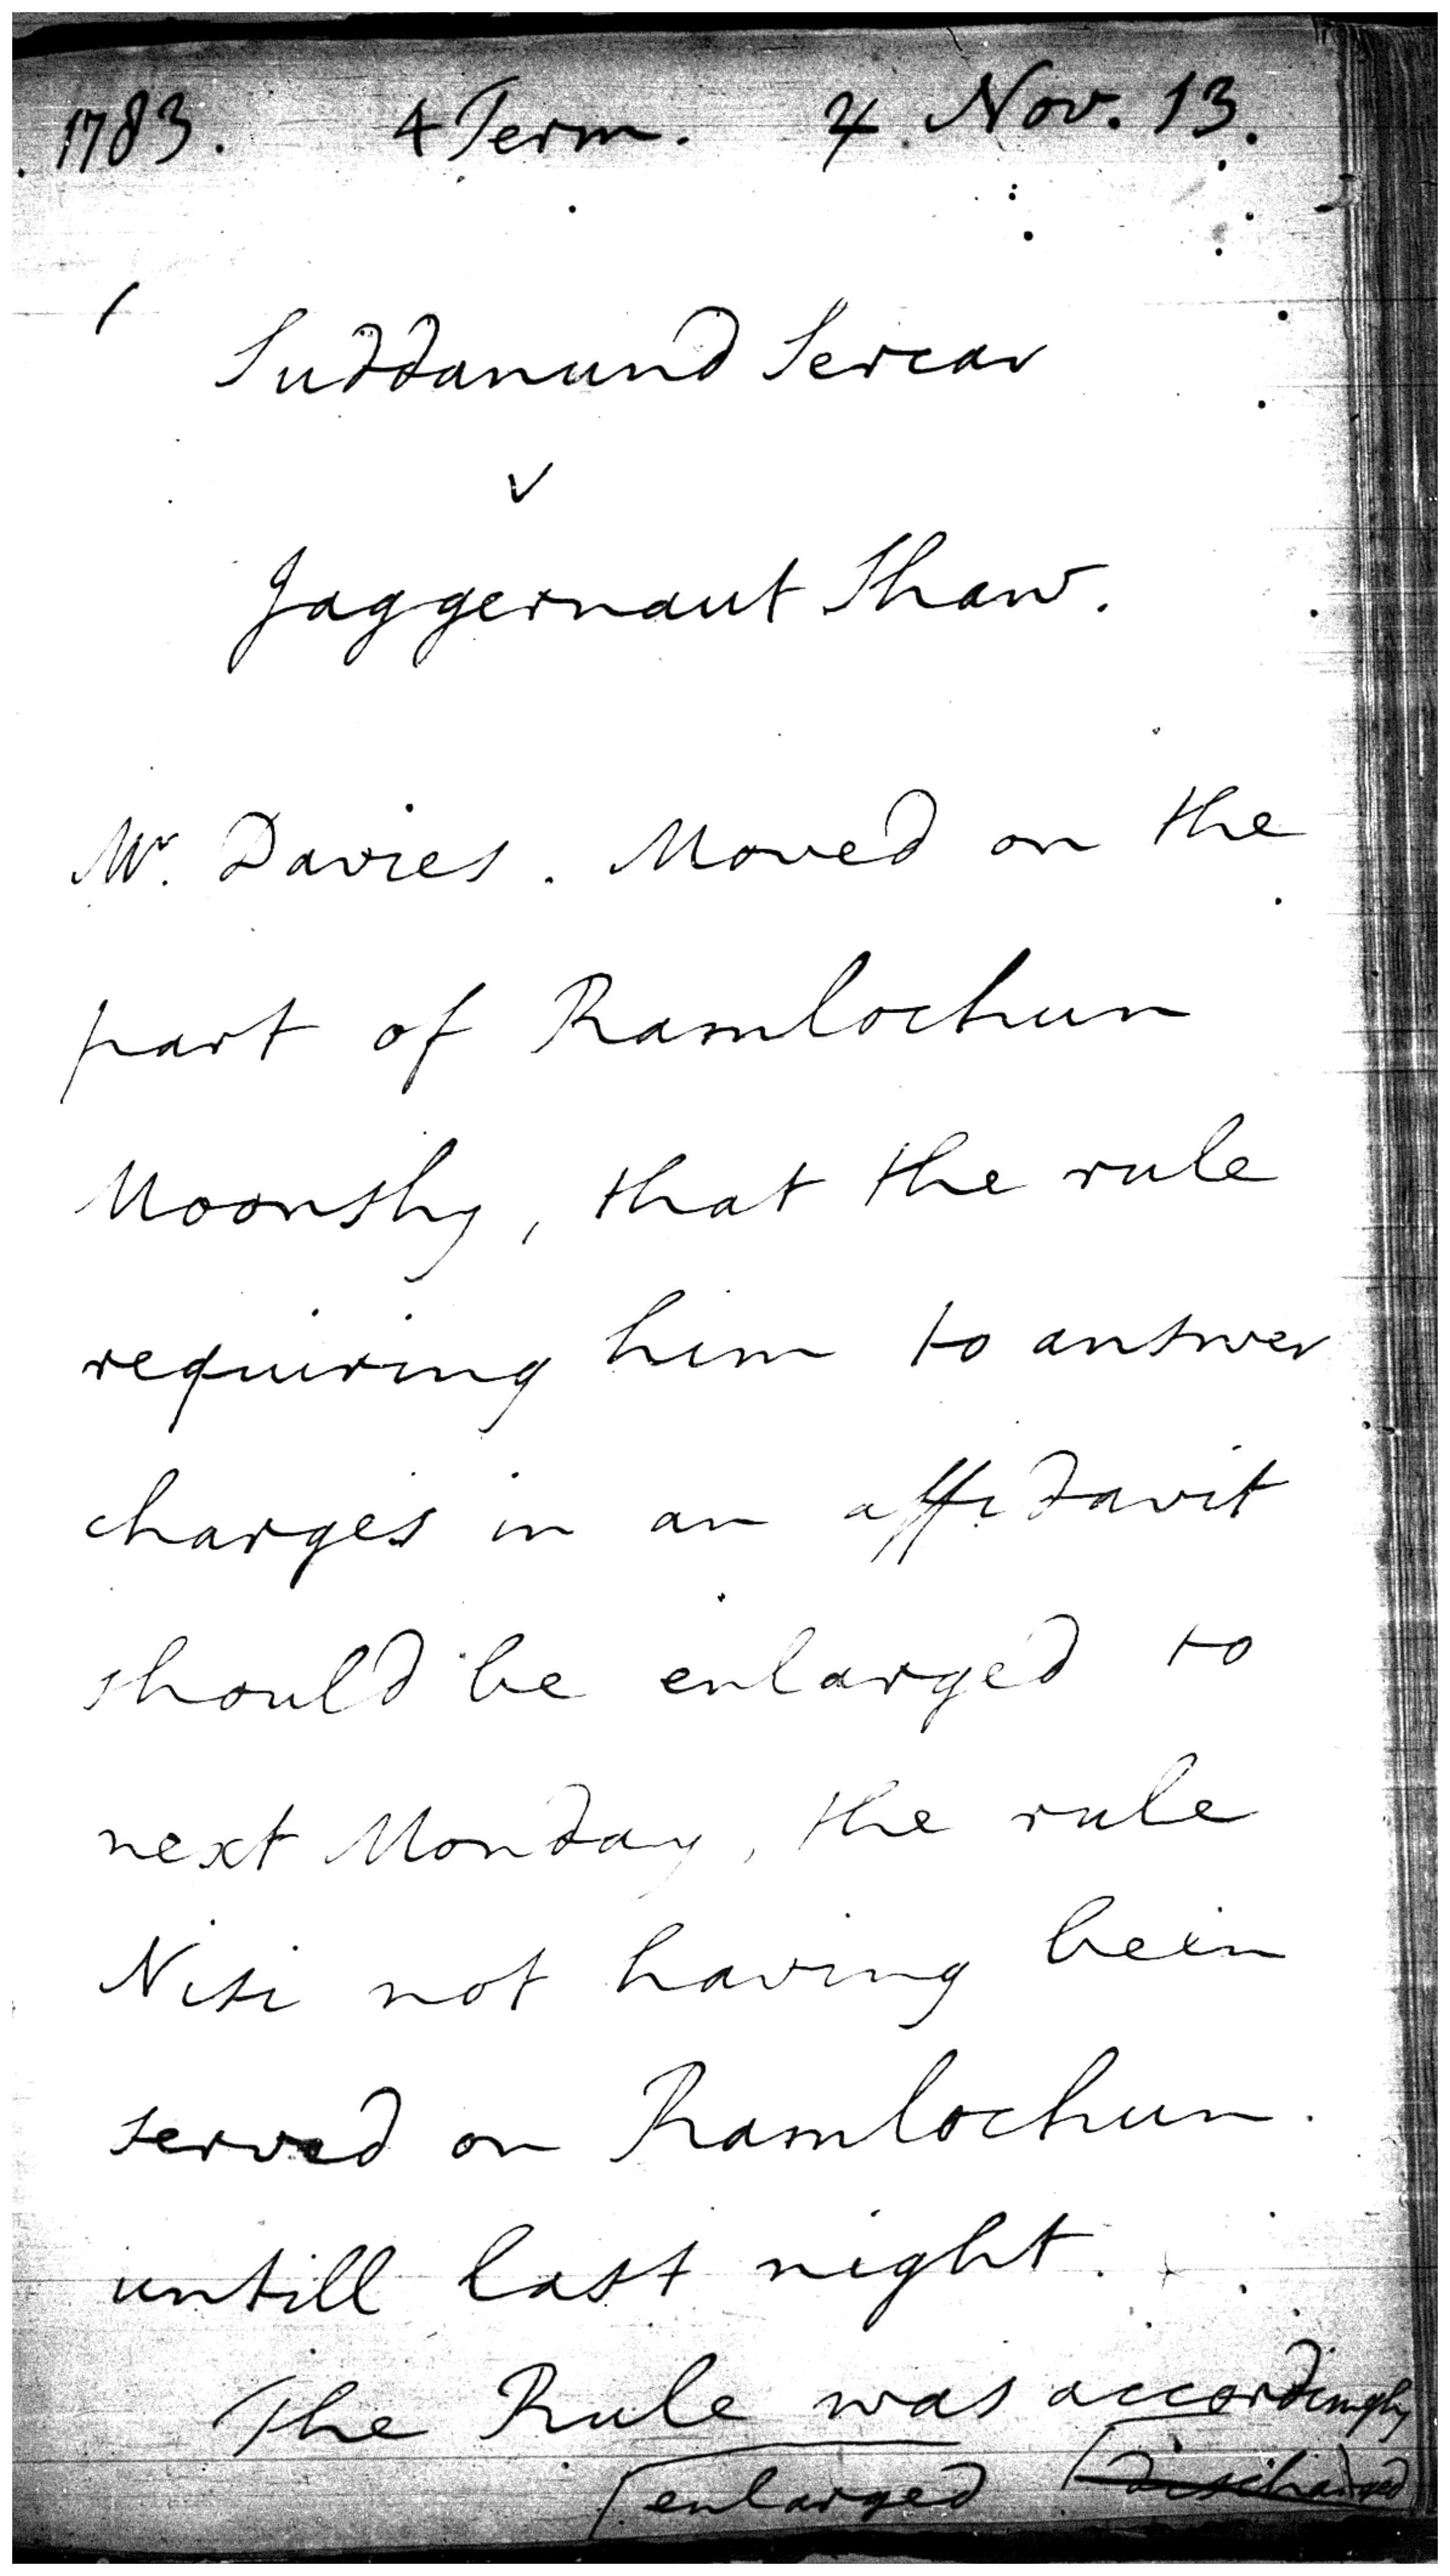 1783. 4 Term. ♃ Nov. 13.
Suddanund Sercar
v
Jaggernaut Shaw.
Mr. Davies. Moved on the
part of Ramlochun
Moonshy, that the rule
requiring him to answer
charges in an affidavit
should be enlarged to
next Monday, the rule
Nisi not having been
served on Ramlochun
untill last night.
The Rule was accordingly
enlarged discharged